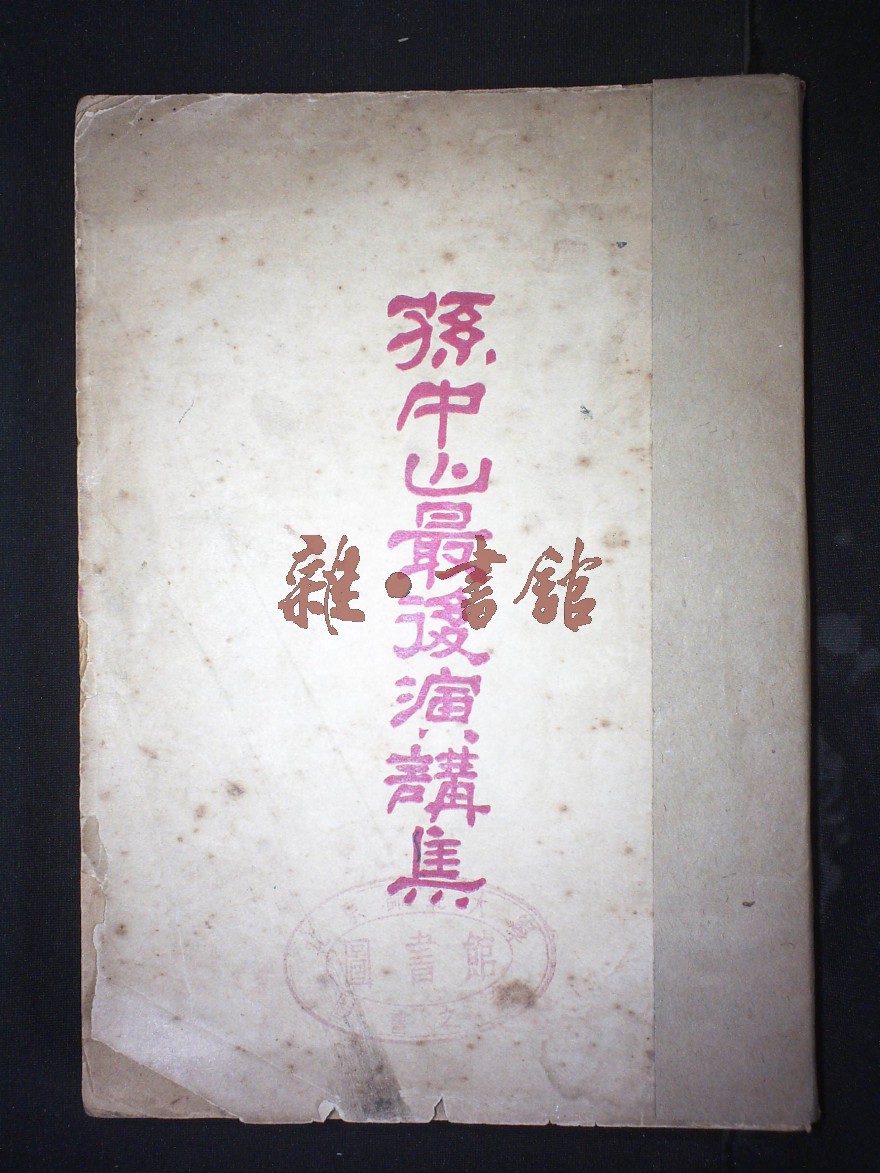 孫中山最後演講集
雜·書館
圖書館